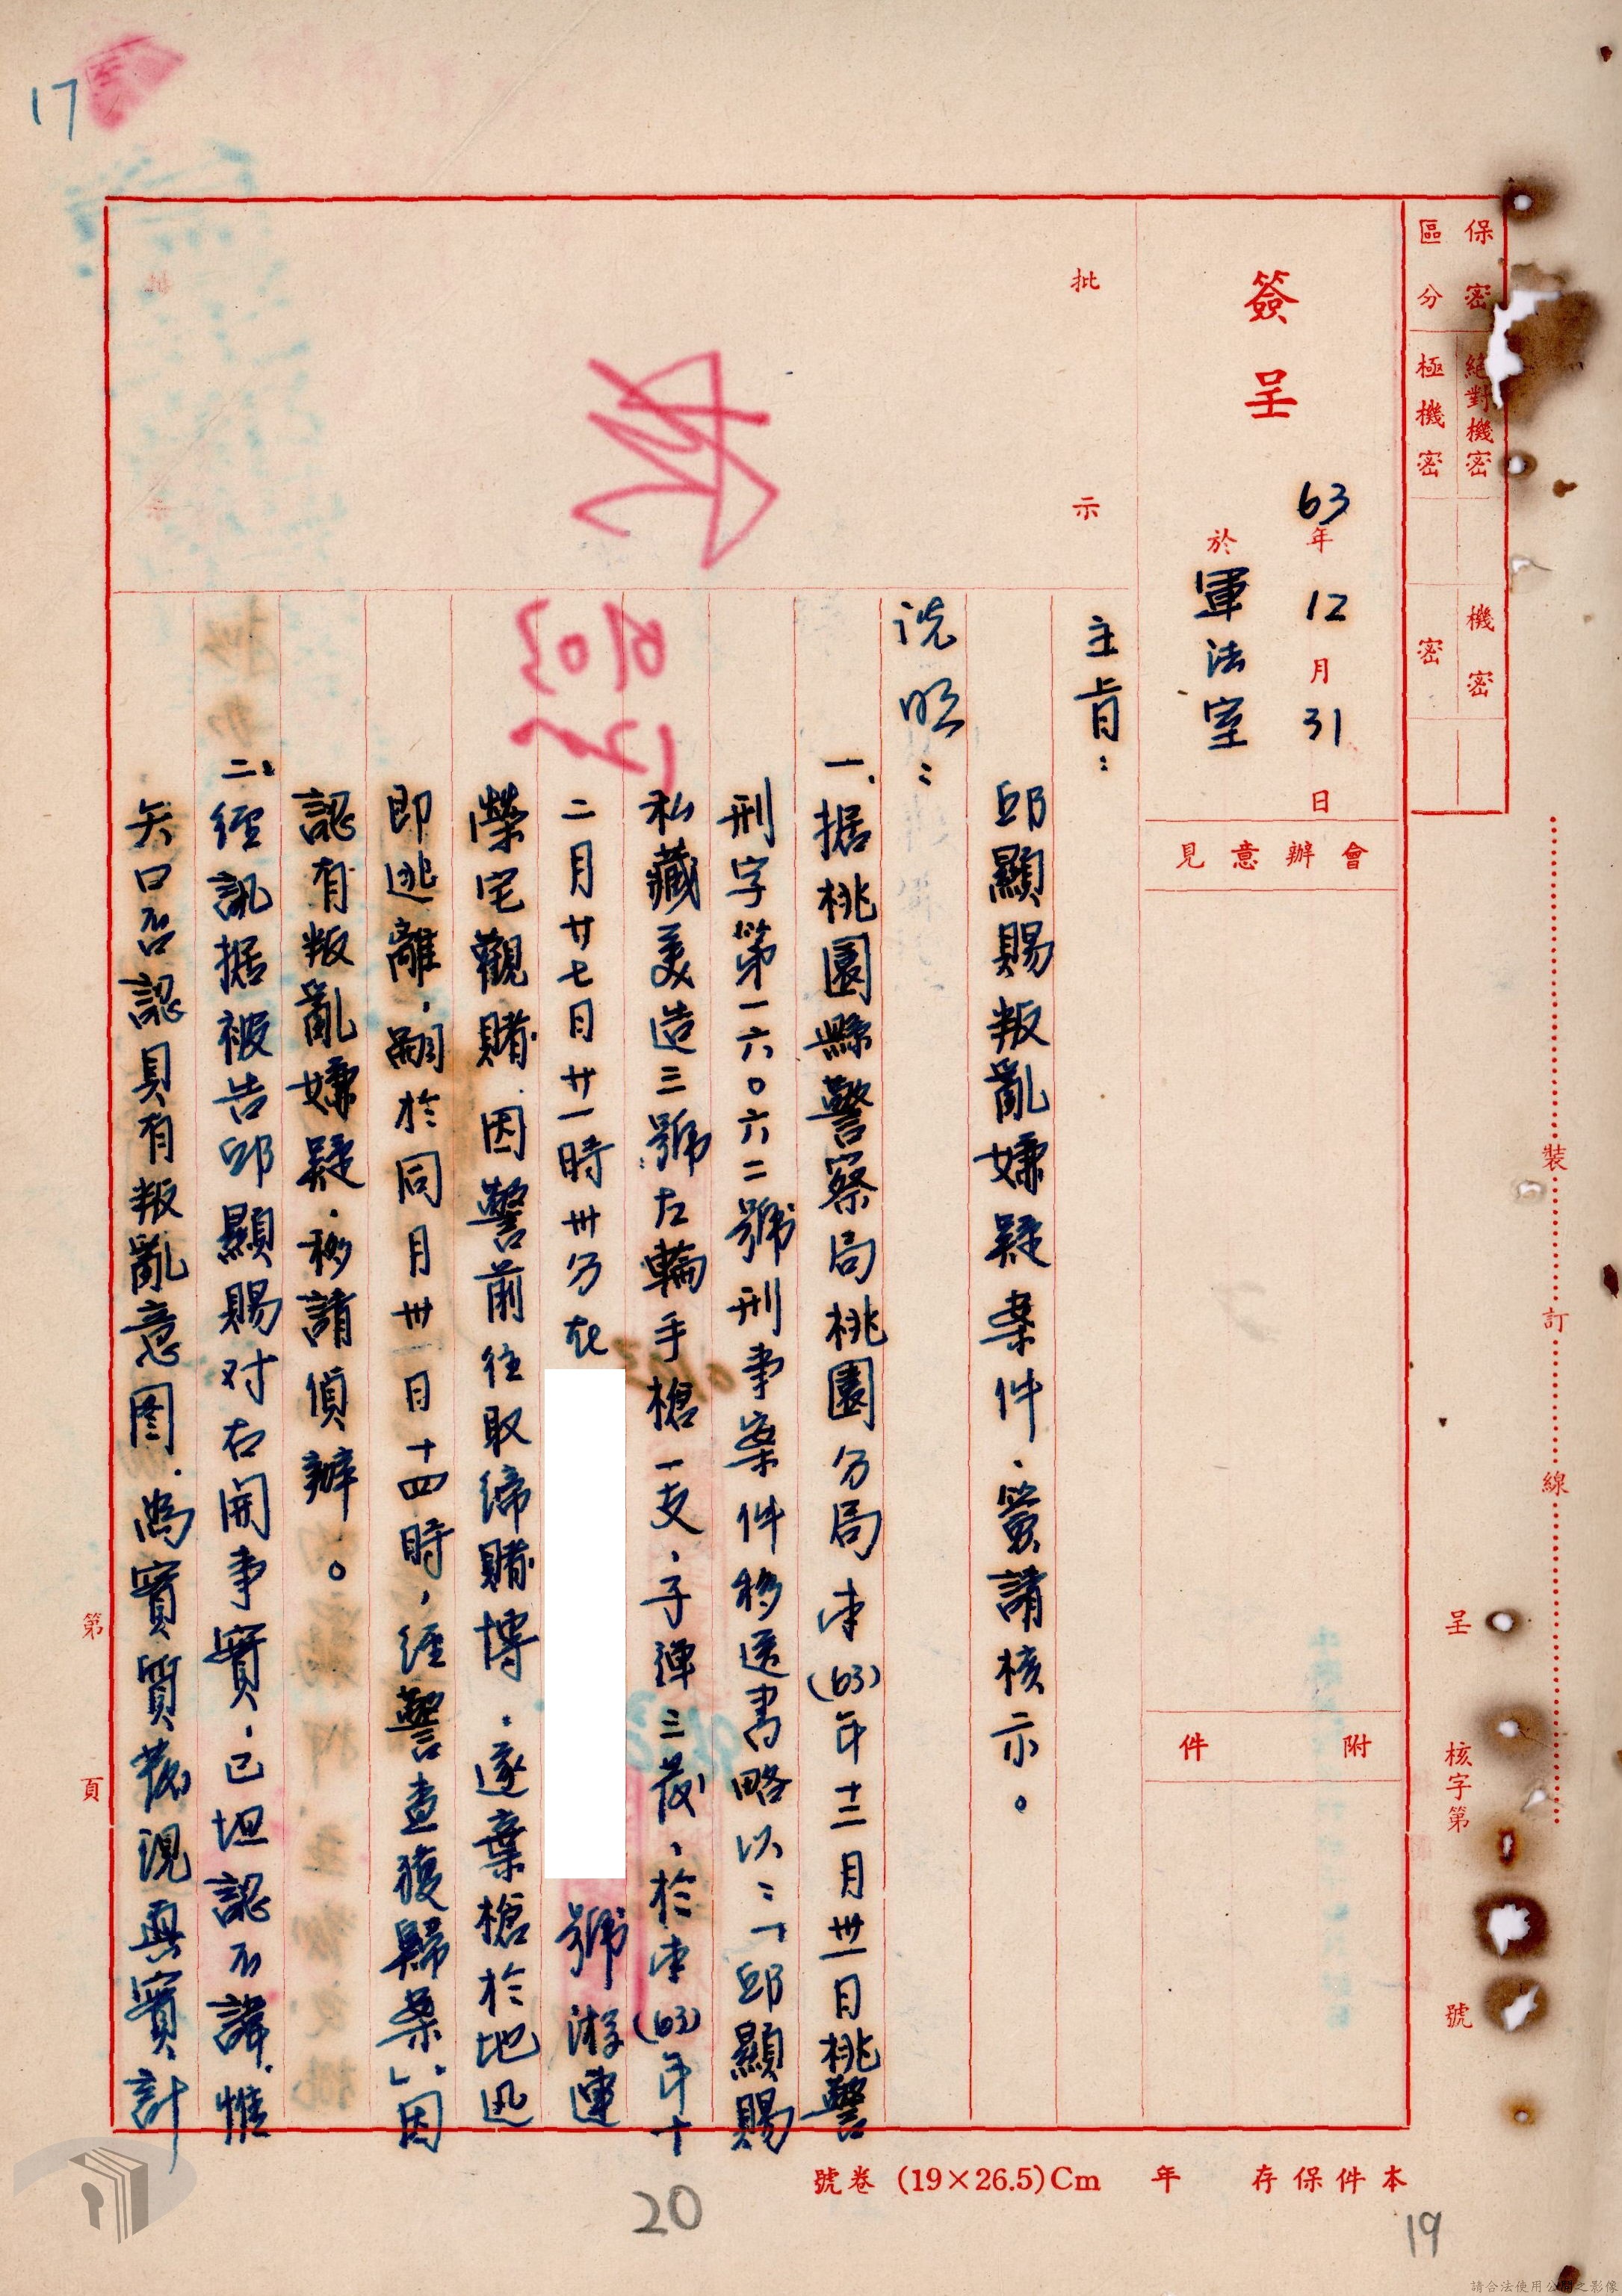 17
保密區分
絕對機密
極機密
機密
密
簽呈
63年12月31日
於軍法室
會辦意見
附件
批示
主旨：
邱顯賜叛亂嫌疑案件、簽請核示。
説明：
一、据桃園縣警察局桃園分局本(63)年十二月卅一日桃警
刑字第一六〇六二號刑事案件移送書略以：「邱顯賜
私藏美造三號左輪手槍一支、子彈三發、於本(63)年十
二月廿七日廿一時卅分在
號游連
榮宅觀賭、因警前往取締賭博、遂棄槍於地迅
即逃離，嗣於同月卅一日十四時，經警查獲歸案」、因
認有叛亂嫌疑、移請偵辦。
二、經訊据被告邱顯賜对右開事實、已坦認不諱、惟
矢口否認具有叛亂意图、為實質發現真實計
第 頁
裝訂線
呈核字第 號
本件保存 年 (19×26.5)Cm 卷號
20
19
請合法使用公開之影像